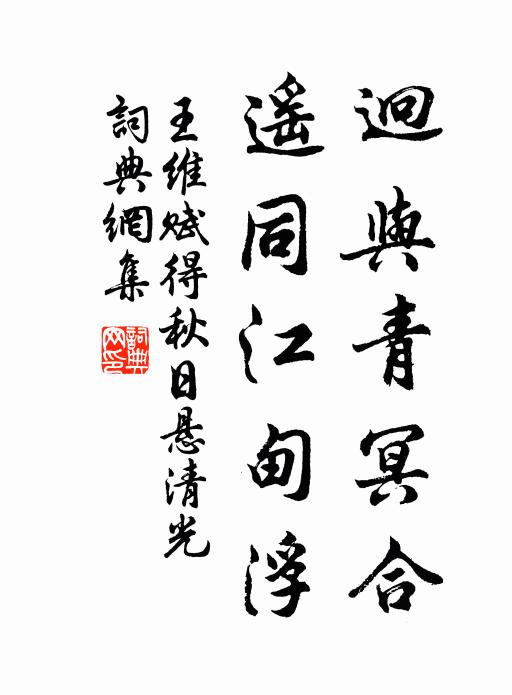 迥與青冥合
遥同江甸浮
王維賦得秋日悬清光
詞典網集
詞典网印